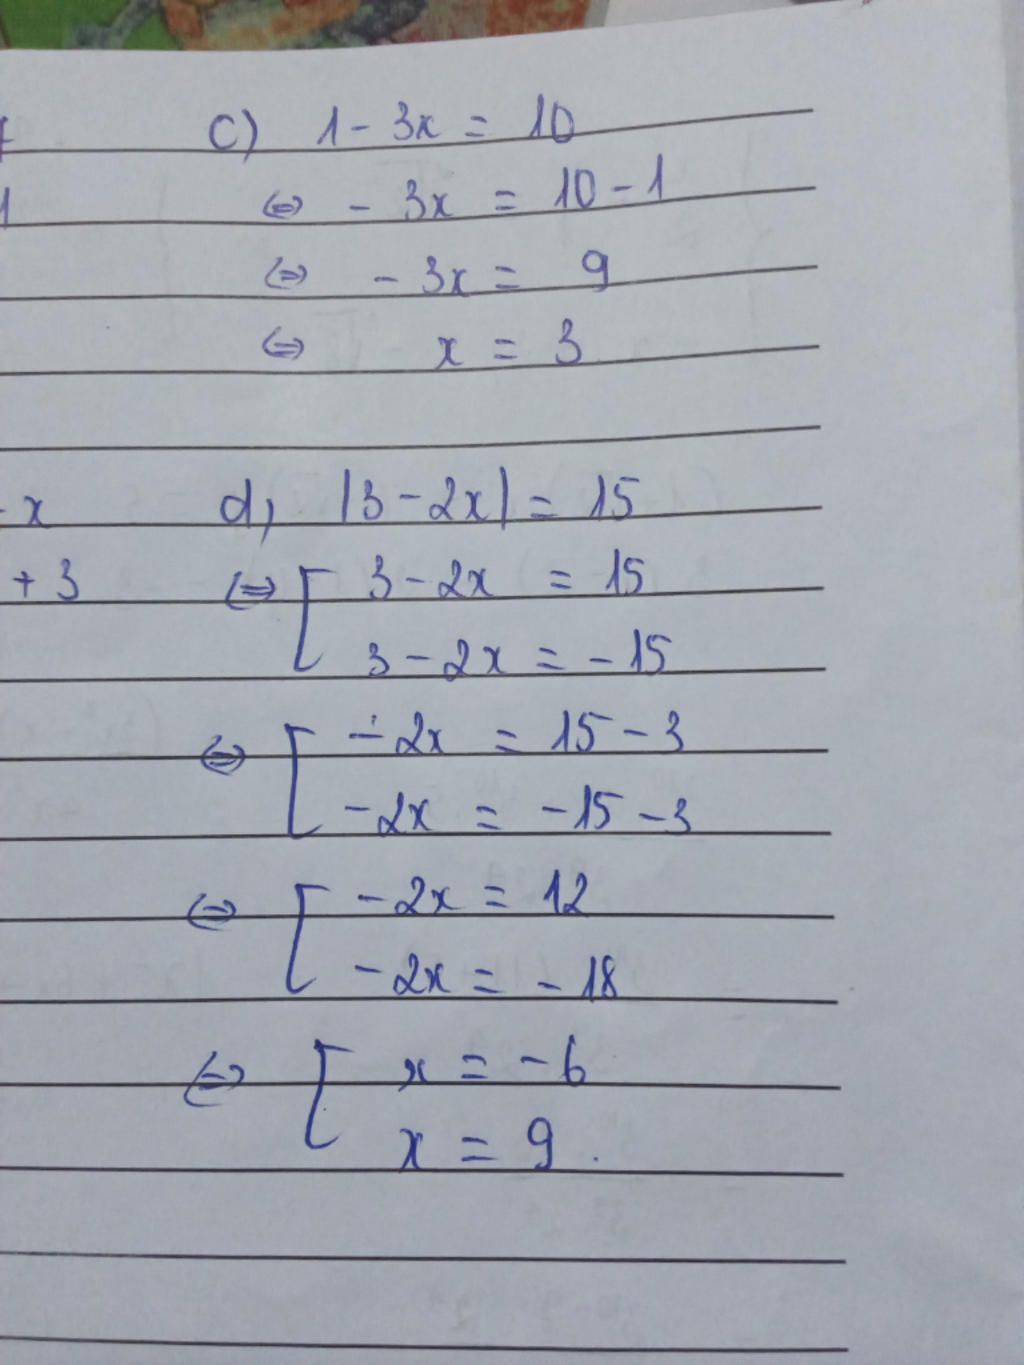 c) 1 - 3x = 10
⇔ - 3x = 10 - 1
⇔ - 3x = 9
⇔ x = 3
- x
+ 3
d, |3 - 2x| = 15
⇔ [ 3 - 2x = 15
3 - 2x = - 15
⇔ [ - 2x = 15 - 3
- 2x = - 15 - 3
⇔ [ - 2x = 12
- 2x = - 18
⇔ [ x = - 6
x = 9.